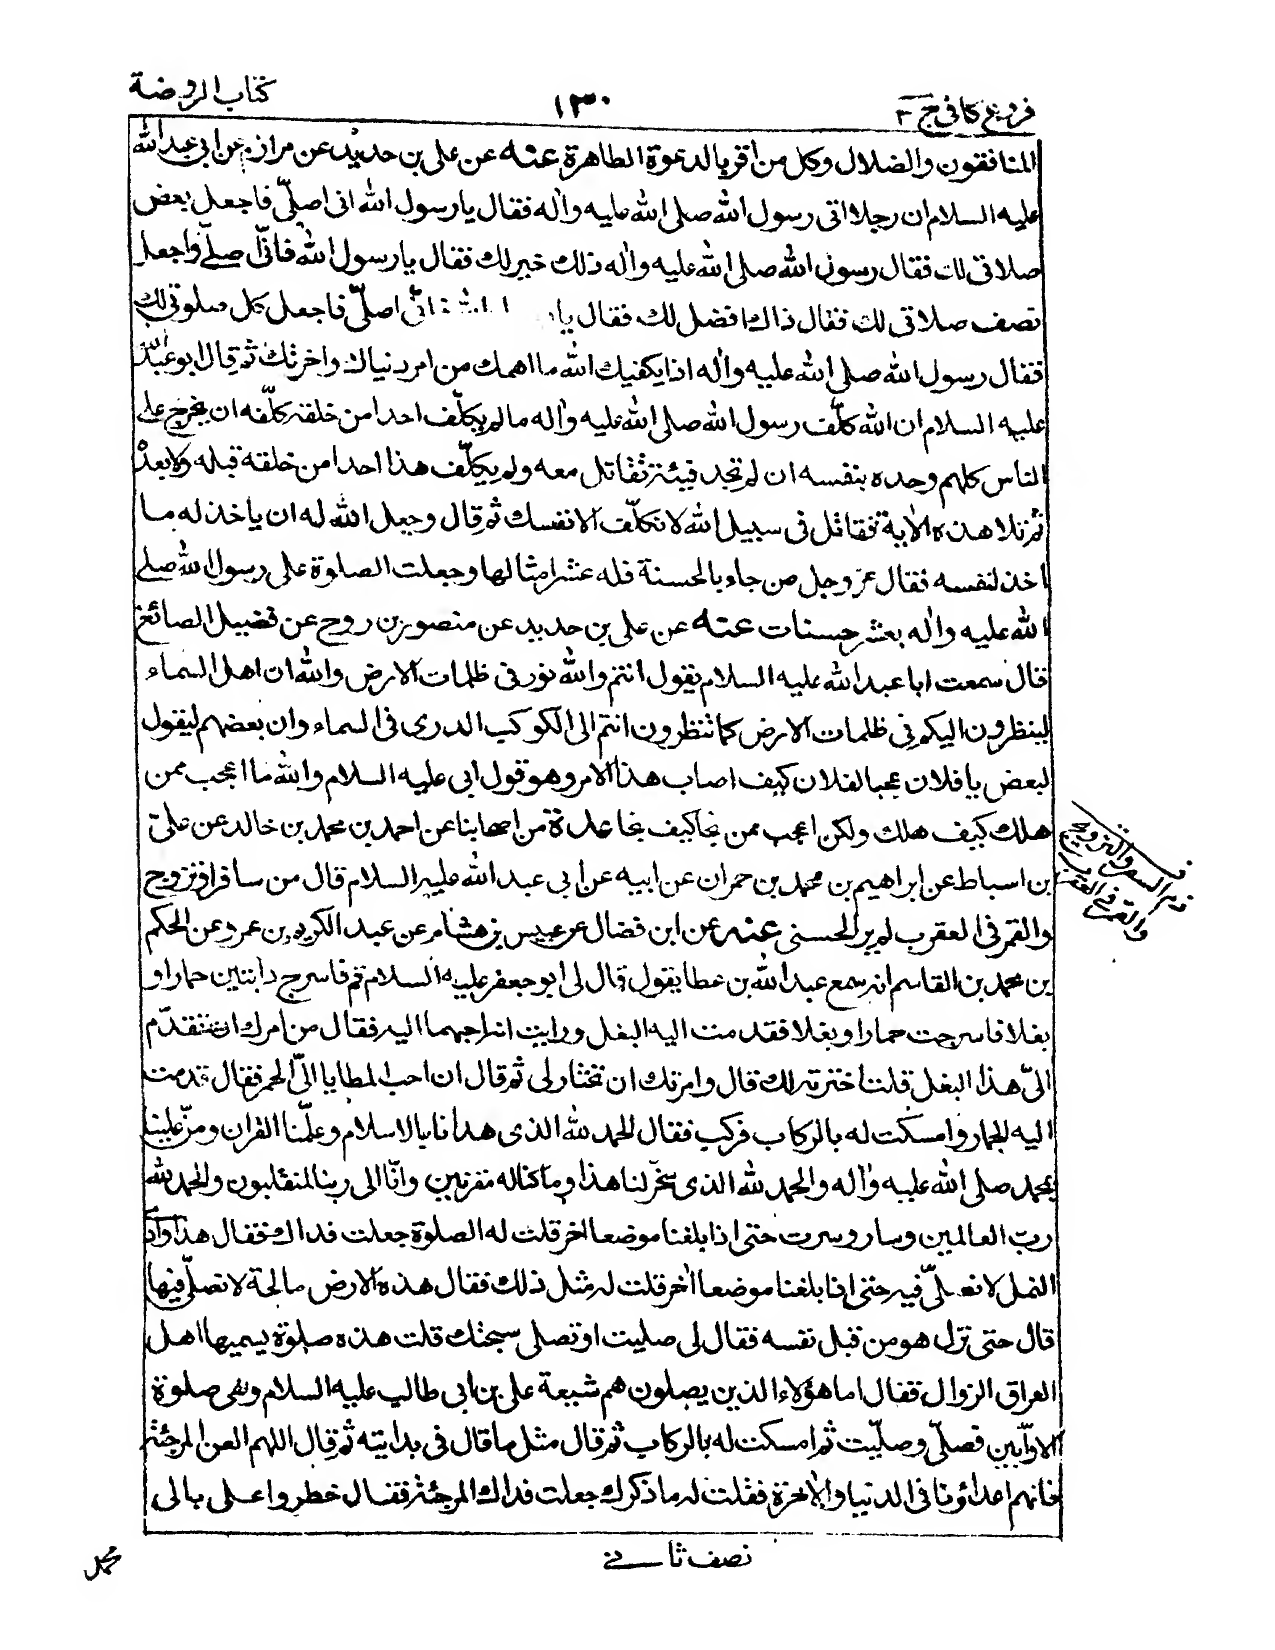 فروع كافى ج ٣
١٣٠
كتاب الروضة
المنافقون والضلال وكل من اقر بالدعوة الطاهرة عنه عن على بن حديد عن مرازم عن ابى عبد الله
عليه السلام ان رجلا اتى رسول الله صلى الله عليه واله فقال يا رسول الله انى اصلّى فاجعل بعض
صلاتى لك فقال رسول الله صلى الله عليه واله ذلك خير لك فقال يا رسول الله فانّى اصلّى واجعل
نصف صلاتى لك فقال ذاك افضل لك فقال يا انّى اصلّى فاجعل كل صلوتى لك
فقال رسول الله صلى الله عليه واله اذا يكفيك الله ما اهمك من امر دنياك واخرتك ثم قال ابو عبد الله
عليه السلام ان الله كلّف رسول الله صلى الله عليه واله ما لم يكلّف احدا من خلقه كلّفه ان يخرج على
الناس كلهم وحده بنفسه ان لم تجد فيئة تقاتل معه ولم يكلّف هذا احدا من خلقه قبله ولا بعده
ثم تلا هذه الاية فقاتل فى سبيل الله لا تكلّف الا نفسك ثم قال وجعل الله له ان ياخذ له ما
اخذ لنفسه فقال عز وجل من جاء بالحسنة فله عشر امثالها وجعلت الصلوة على رسول الله صلى
الله عليه واله بعشر حسنات عنه عن على بن حديد عن منصور بن روح عن فضيل الصائغ
قال سمعت ابا عبد الله عليه السلام يقول انتم والله نور فى ظلمات الارض والله ان اهل السماء
لينظرون اليكم فى ظلمات الارض كما تنظرون انتم الى الكوكب الدرى فى السماء وان بعضهم ليقول
لبعض يا فلان عجبا لفلان كيف اصاب هذا الامر وهو قول ابى عليه السلام والله ما اعجب ممن
هلك كيف هلك ولكن اعجب ممن نجا كيف نجا عدة من اصحابنا عن احمد بن محمد بن خالد عن علىّ
بن اسباط عن ابراهيم بن محمد بن حمران عن ابيه عن ابى عبد الله عليه السلام قال من سافر او تزوج
والقمر فى العقرب لم ير الحسنى عنه عن ابن فضال عن عبيس بن هشام عن عبد الكريم بن عمرو عن الحكم
بن محمد بن القاسم انه سمع عبد الله بن عطا يقول قال لى ابو جعفر عليه السلام قم فاسرج دابتين حمارا و
بغلا فاسرجت حمارا وبغلا فقدمت اليه البغل ورايت انه احبهما اليه فقال من امرك ان تقدّم
الىّ هذا البغل قلت اخترته لك قال وامرتك ان تختار لى ثم قال ان احب المطايا الىّ الحمر فقال قدمت
اليه الحمار وامسكت له بالركاب فركب فقال الحمد لله الذى هدانا بالاسلام وعلّمنا القران ومنّ علينا
بمحمد صلى الله عليه واله والحمد لله الذى سخّر لنا هذا وما كنا له مقرنين وانّا الى ربنا لمنقلبون والحمد لله
رب العالمين وسار وسرت حتى اذا بلغنا موضعا اخر قلت له الصلوة جعلت فداك فقال هذا وادى
النمل لا تصلّى فيه حتى اذا بلغنا موضعا اخر قلت له مثل ذلك فقال هذه الارض مالحة لا تصلّى فيها
قال حتى نزل هو من قبل نفسه فقال لى صليت او تصلى سبحتك قلت هذه صلوة يسميها اهل
العراق الزوال فقال اما هؤلاء الذين يصلون هم شيعة على بن ابى طالب عليه السلام وهى صلوة
الاوّابين فصلّى وصلّيت ثم امسكت له بالركاب ثم قال مثل ما قال فى بدايته ثم قال اللهم العن المرجئة
فانهم اعداؤنا فى الدنيا والاخرة فقلت له ما ذكرك جعلت فداك المرجئة فقال خطروا على بالى
السفر والتزويج
والقمر فى العقرب
نصف ثانى
محمد